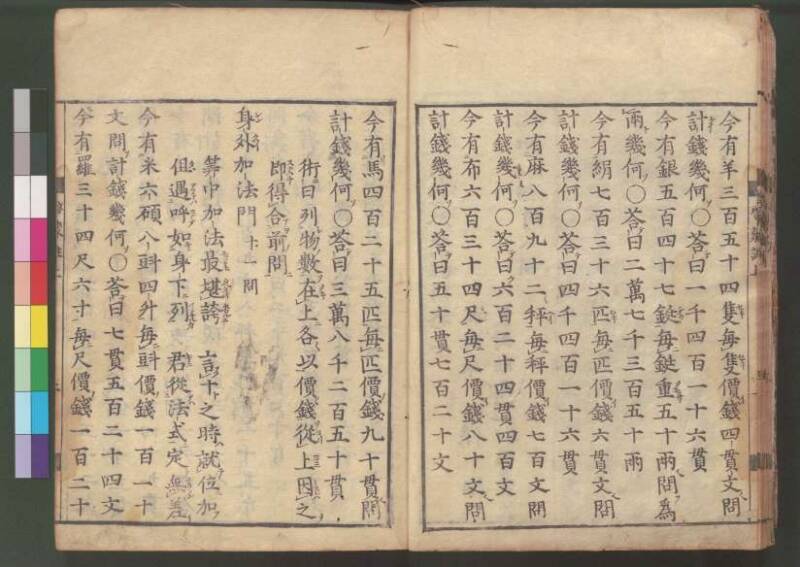 今有羊三百五十四隻每隻價錢四貫文問
計錢幾何〇荅曰一千四百一十六貫
今有銀五百四十七錠每錠重五十兩問為
兩幾何〇荅曰二萬七千三百五十兩
今有絹七百三十六匹每匹價錢六貫文問
計錢幾何〇荅曰四千四百一十六貫
今有麻八百九十二秤每秤價錢七百文問
計錢幾何〇荅曰六百二十四貫四百文
今有布六百三十四尺每尺價錢八十文問
計錢幾何〇荅曰五十貫七百二十文
今有馬四百二十五匹每匹價錢九十貫問
計錢幾何〇荅曰三萬八千二百五十貫
術曰列物數在上各以價錢從上因之
即得合前問
身外加法門 十一問
筭中加法最堪誇 言十之時就位加
但遇呼如身下列 君從法式定無差
今有米六碩八㪷四升每㪷價錢一百一十
文問計錢幾何〇荅曰七貫五百二十四文
今有羅三十四尺六寸每尺價錢一百二十